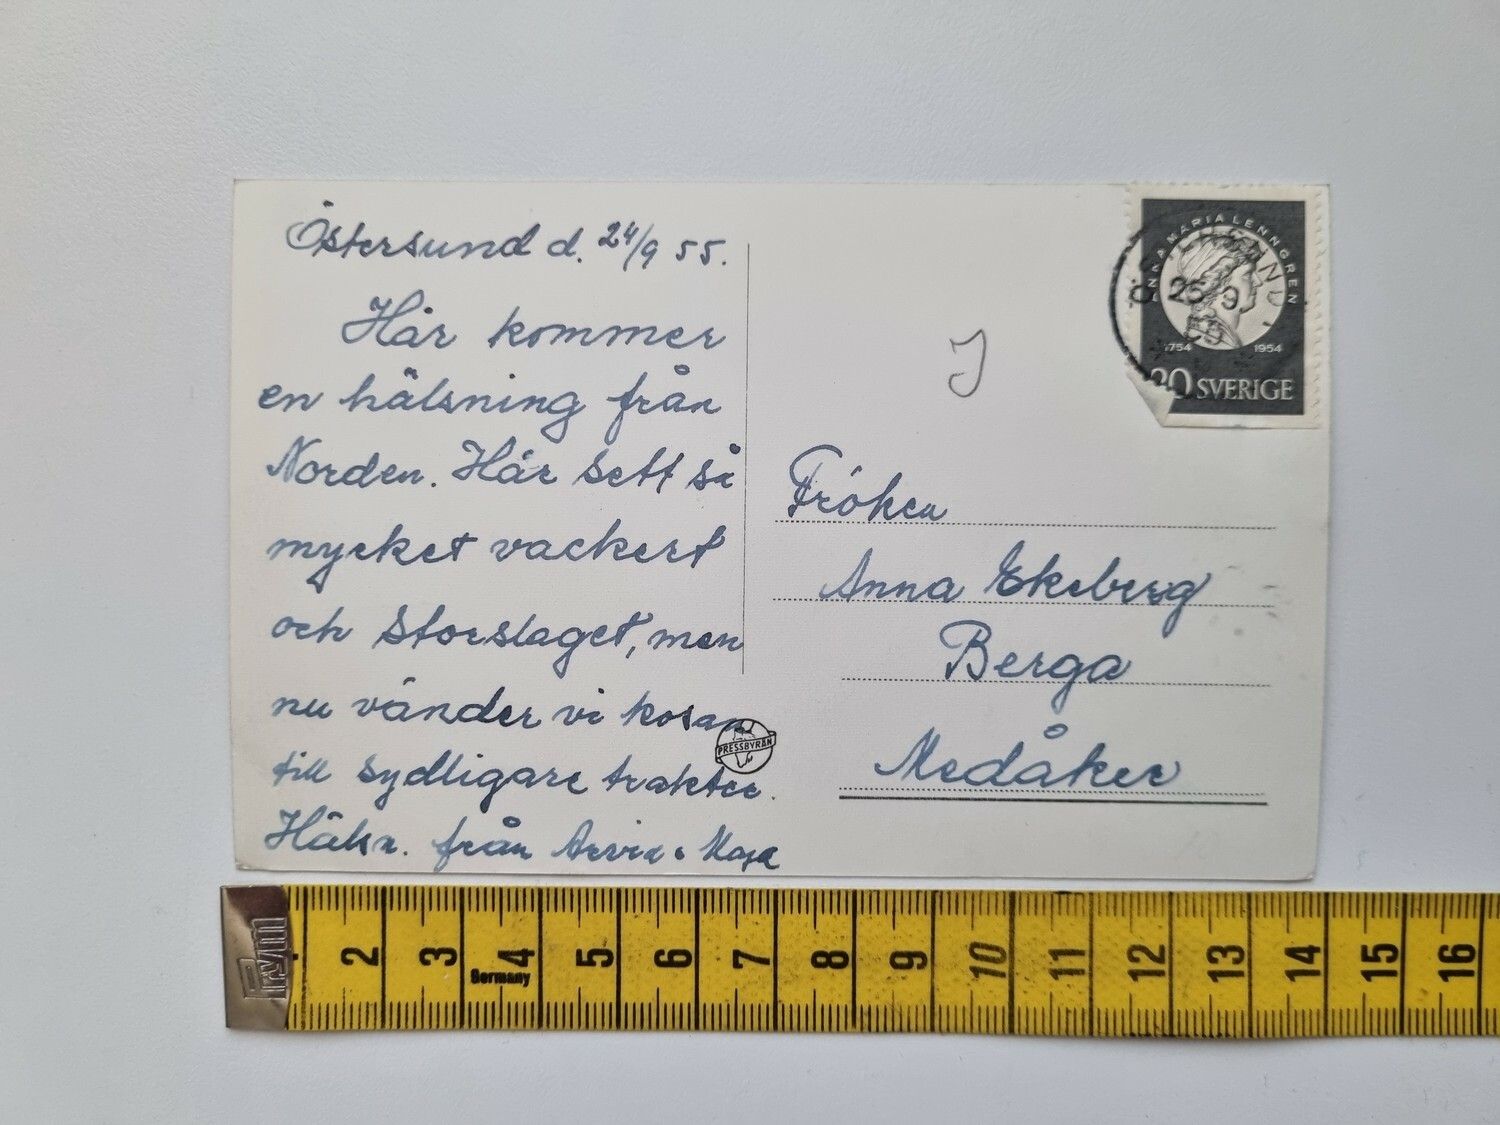 Östersund d. 24/9 55.
Här kommer
en hälsning från
Norden. Här sett så
mycket vackert
och storslaget, men
nu vänder vi kosan
till sydligare trakter.
Hälsn. från Arvid o Maja
J
Fröken
Anna Ekeberg
Berga
Medåker
PRESSBYRÅN
ANNA MARIA LENNGREN
1754 1954
20 SVERIGE
ÖSTERSUND 1
25 9
55
Prym
2 3 4 5 6 7 8 9 10 11 12 13 14 15 16
Germany